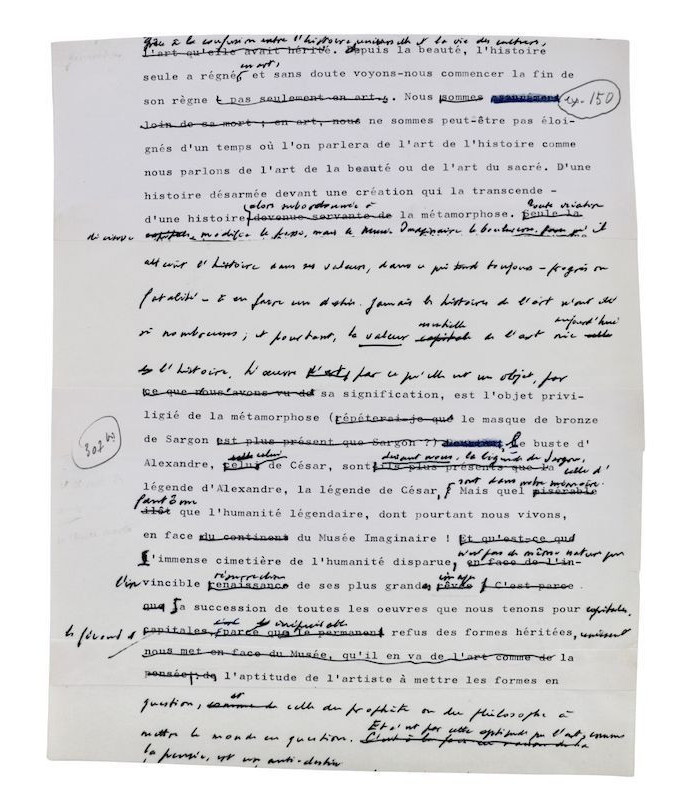 grâce à la confusion entre l'histoire universelle et la vie des cultures,
l'art qu'elle avait hérité. Depuis la beauté, l'histoire
en art,
seule a régné et sans doute voyons-nous commencer la fin de
son règne t pas seulement en art. Nous sommes ex-150
loin de sa mort ; en art, nous ne sommes peut-être pas éloi-
gnés d'un temps où l'on parlera de l'art de l'histoire comme
nous parlons de l'art de la beauté ou de l'art du sacré. D'une
histoire désarmée devant une création qui la transcende -
alors subordonnée à toute
d'une histoire devenue servante de la métamorphose. Seule la
modifie le passé, mais le Musée Imaginaire le bouleverse, il
l'histoire dans ses valeurs, dans ce qui tend toujours - progrès ou
fatalité - à en faire un destin. Jamais les histoires de l'art n'ont été
aujourd'hui
si nombreuses ; et pourtant, la valeur capitale de l'art nie celle
l'histoire. L'œuvre n'est, par ce qu'elle est un objet, par
ce que nous avons vu de sa signification, est l'objet privi-
ligié de la métamorphose (répéterai-je que le masque de bronze
307
de Sargon est plus présent que Sargon ?) le buste d'
celui devant nous, la légende de Sargon, celle d'
Alexandre, celui de César, sont ils plus présents que la
sont dans notre mémoire.
légende d'Alexandre, la légende de César, Mais quel misérable
fantôme
îlôt que l'humanité légendaire, dont pourtant nous vivons,
en face du continent du Musée Imaginaire ! Et qu'est-ce que
n'est pas de même nature que
l'immense cimetière de l'humanité disparue, en face de l'in-
résurrection images
l'invincible renaissance de ses plus grands rêves C'est parce
que la succession de toutes les oeuvres que nous tenons pour capitales,
le fécond et inépuisable
capitales, parce que le permanent refus des formes héritées, unissent
nous met en face du Musée, qu'il en va de l'art comme de la
pensée : de l'aptitude de l'artiste à mettre les formes en
et
question, comme de celle du prophète ou du philosophe à
Et c'est par cette aptitude que l'art, comme
mettre le monde en question. C'est à la fois en raison de la
la pensée, est un anti-destin